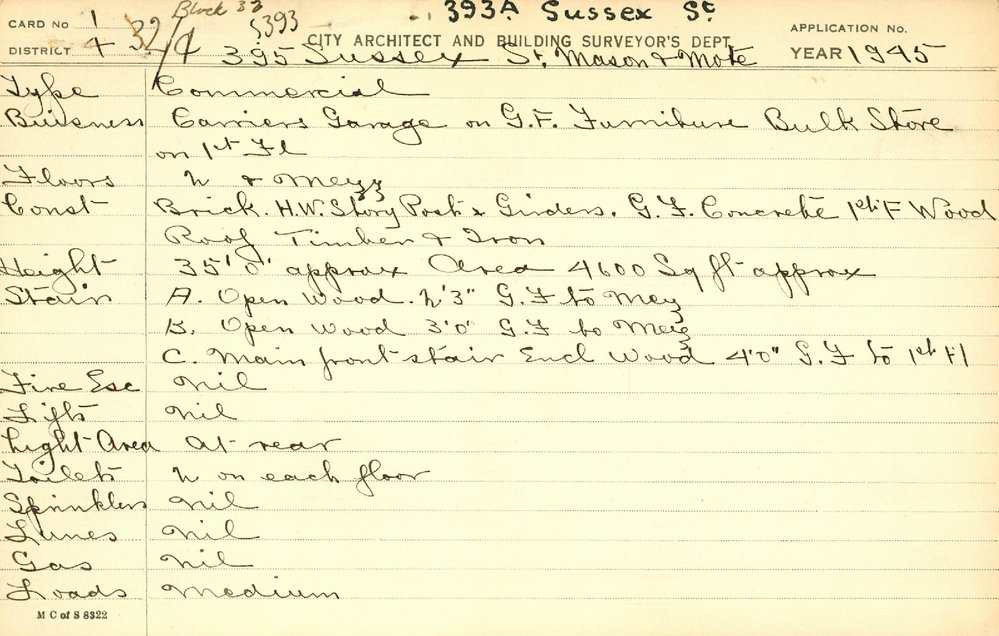 CARD No 1 Block 32 393 393A Sussex St
DISTRICT 4 32/4 CITY ARCHITECT AND BUILDING SURVEYOR'S DEPT. APPLICATION No.
395 Sussex St. Mason & Mote YEAR 1945
Type Commercial
Buisness Carriers Garage on G.F. Furniture Bulk Store
on 1st Fl
Floors 2 & Mezz
Const Brick. H.W. Story Post & Girders. G.F. Concrete 1st F Wood
Roof Timber & Iron
Height 35'0" approx Area 4600 Sq ft approx
Stair A. Open Wood. 2'3" G.F to Mez
B. Open Wood 3'0" G.F to Mez
C. Main front stair Encl Wood 4'0" G.F to 1st Fl
Fire Esc Nil
Lifts Nil
Light Area At rear
Toilets 2 on each floor
Sprinklers Nil
Lunes Nil
Gas Nil
Loads Medium
M C of S 8322